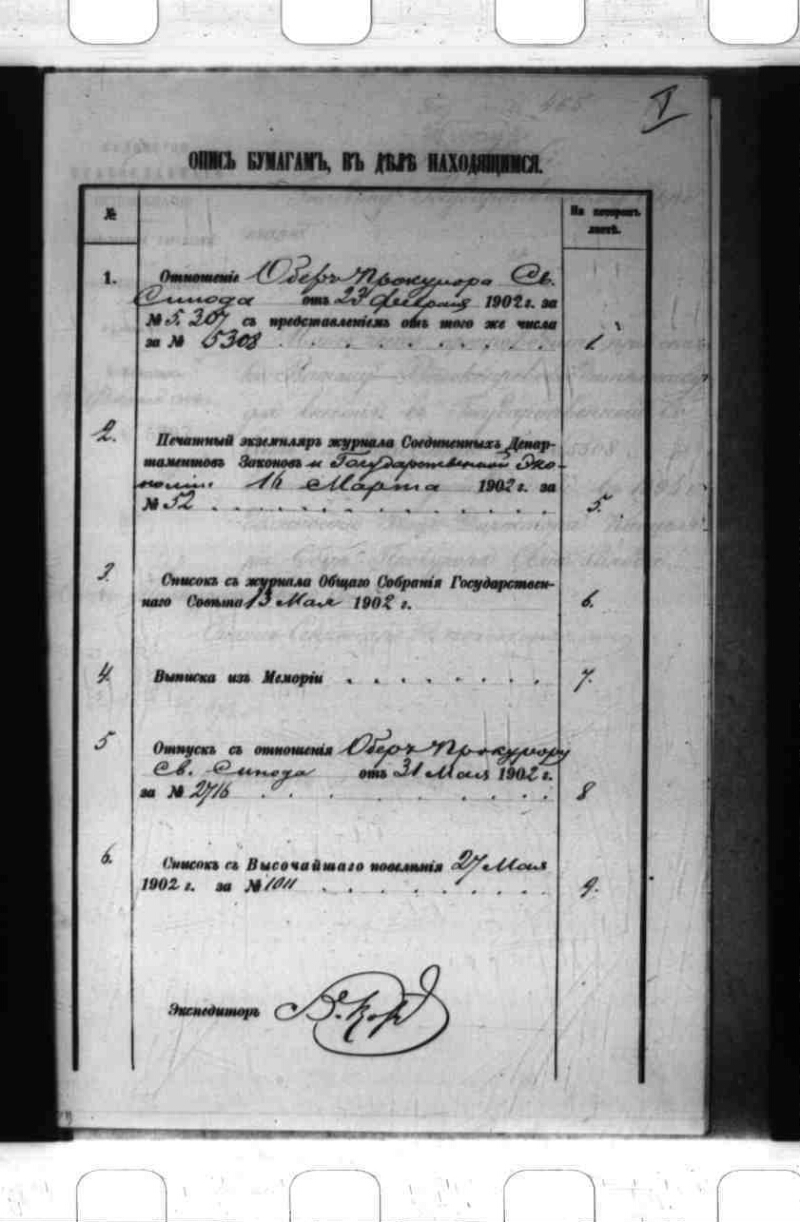 V
ОПИСЬ БУМАГАМЪ, ВЪ ДѢЛѢ НАХОДЯЩИМСЯ.
№
На которомъ
листѣ.
1. Отношеніе Оберъ Прокурора Св.
Синода отъ 23 февраля 1902 г. за
№ 5.307 съ представленіемъ отъ того же числа
за № 5308 . . . . . . . . . . 1
2. Печатный экземпляръ журнала Соединенныхъ Депар-
таментовъ Законовъ и Государственной Эко-
номіи 16 Марта 1902 г. за
№ 52 . . . . . . . . . . . 5.
3. Списокъ съ журнала Общаго Собранія Государствен-
наго Совѣта 13 Мая 1902 г. 6.
4. Выписка изъ Меморіи . . . . . . . . 7.
5 Отпускъ съ отношенія Оберъ Прокурору
Св. Синода отъ 31 Мая 1902 г.
за № 2716 . . . . . . . . . . 8
6. Списокъ съ Высочайшаго повелѣнія 27 Мая
1902 г. за № 1011 . . . . . . . . . 9.
Экспедиторъ